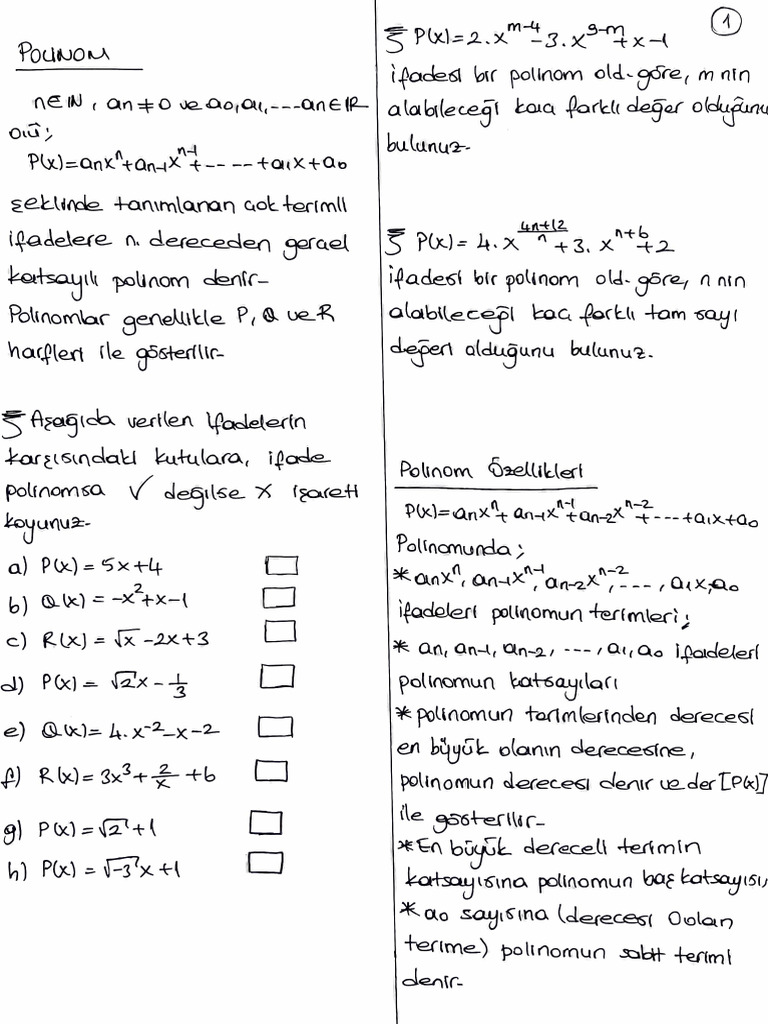 POLİNOM
n∈IN, an≠0 ve a0, a1, ---an∈IR
olü;
P(x)=anxⁿ+an-1xⁿ⁻¹+-----+a1x+a0
şeklinde tanımlanan çok terimli
ifadelere n. dereceden gerçel
katsayılı polinom denir-
Polinomlar genellikle P, Q ve R
harfleri ile gösterilir-
Aşağıda verilen ifadelerin
karşısındaki kutulara, ifade
polinomsa ✓ değilse X işareti
koyunuz-
a) P(x) = 5x+4
b) Q(x) = -x²+x-1
c) R(x) = √x -2x+3
d) P(x) = √2x - 1/3
e) Q(x)= 4.x⁻²-x-2
f) R(x) = 3x³+ 2/x +6
g) P(x) = √2+1
h) P(x) = √-3x+1
1
P(x)=2.x^(m-4)-3.x^(9-m)+x-1
ifadesi bir polinom old. göre, m nin
alabileceği kaç farklı değer olduğunu
bulunuz-
P(x)= 4.x^((4n+12)/n)+3.x^(n+6)+2
ifadesi bir polinom old-göre, n nin
alabileceği kaç farklı tam sayı
değeri olduğunu bulunuz.
Polinom Özellikleri
P(x)=anxⁿ+an-1xⁿ⁻¹+an-2xⁿ⁻²+---+a1x+a0
Polinomunda;
*anxⁿ, an-1xⁿ⁻¹, an-2xⁿ⁻², ---, a1x, a0
ifadeleri polinomun terimleri;
* an, an-1, an-2, ---, a1, a0 ifadeleri
polinomun katsayıları
*polinomun terimlerinden derecesi
en büyük olanın derecesine,
polinomun derecesi denir ve der[P(x)]
ile gösterilir-
*En büyük dereceli terimin
katsayısına polinomun baş katsayısı,
*a0 sayısına (derecesi 0 olan
terime) polinomun sabit terimi
denir-